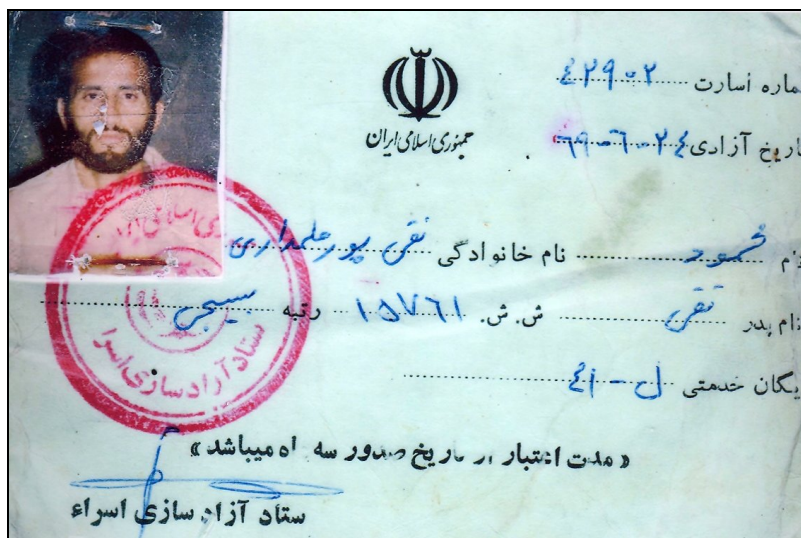 جمهوری اسلامی ایران
شماره اسارت ٤٢٩٠٢
تاریخ آزادی ٦٩-٦-٢٤
نام محمود نام خانوادگی تقی پور علمداری
نام پدر تقی ش. ش. ١٥٧٦١ رتبه بسیجی
یگان خدمتی ل-٤١
« مدت اعتبار از تاریخ صدور سه ماه میباشد »
ستاد آزاد سازی اسراء
ستاد آزاد سازی اسرا